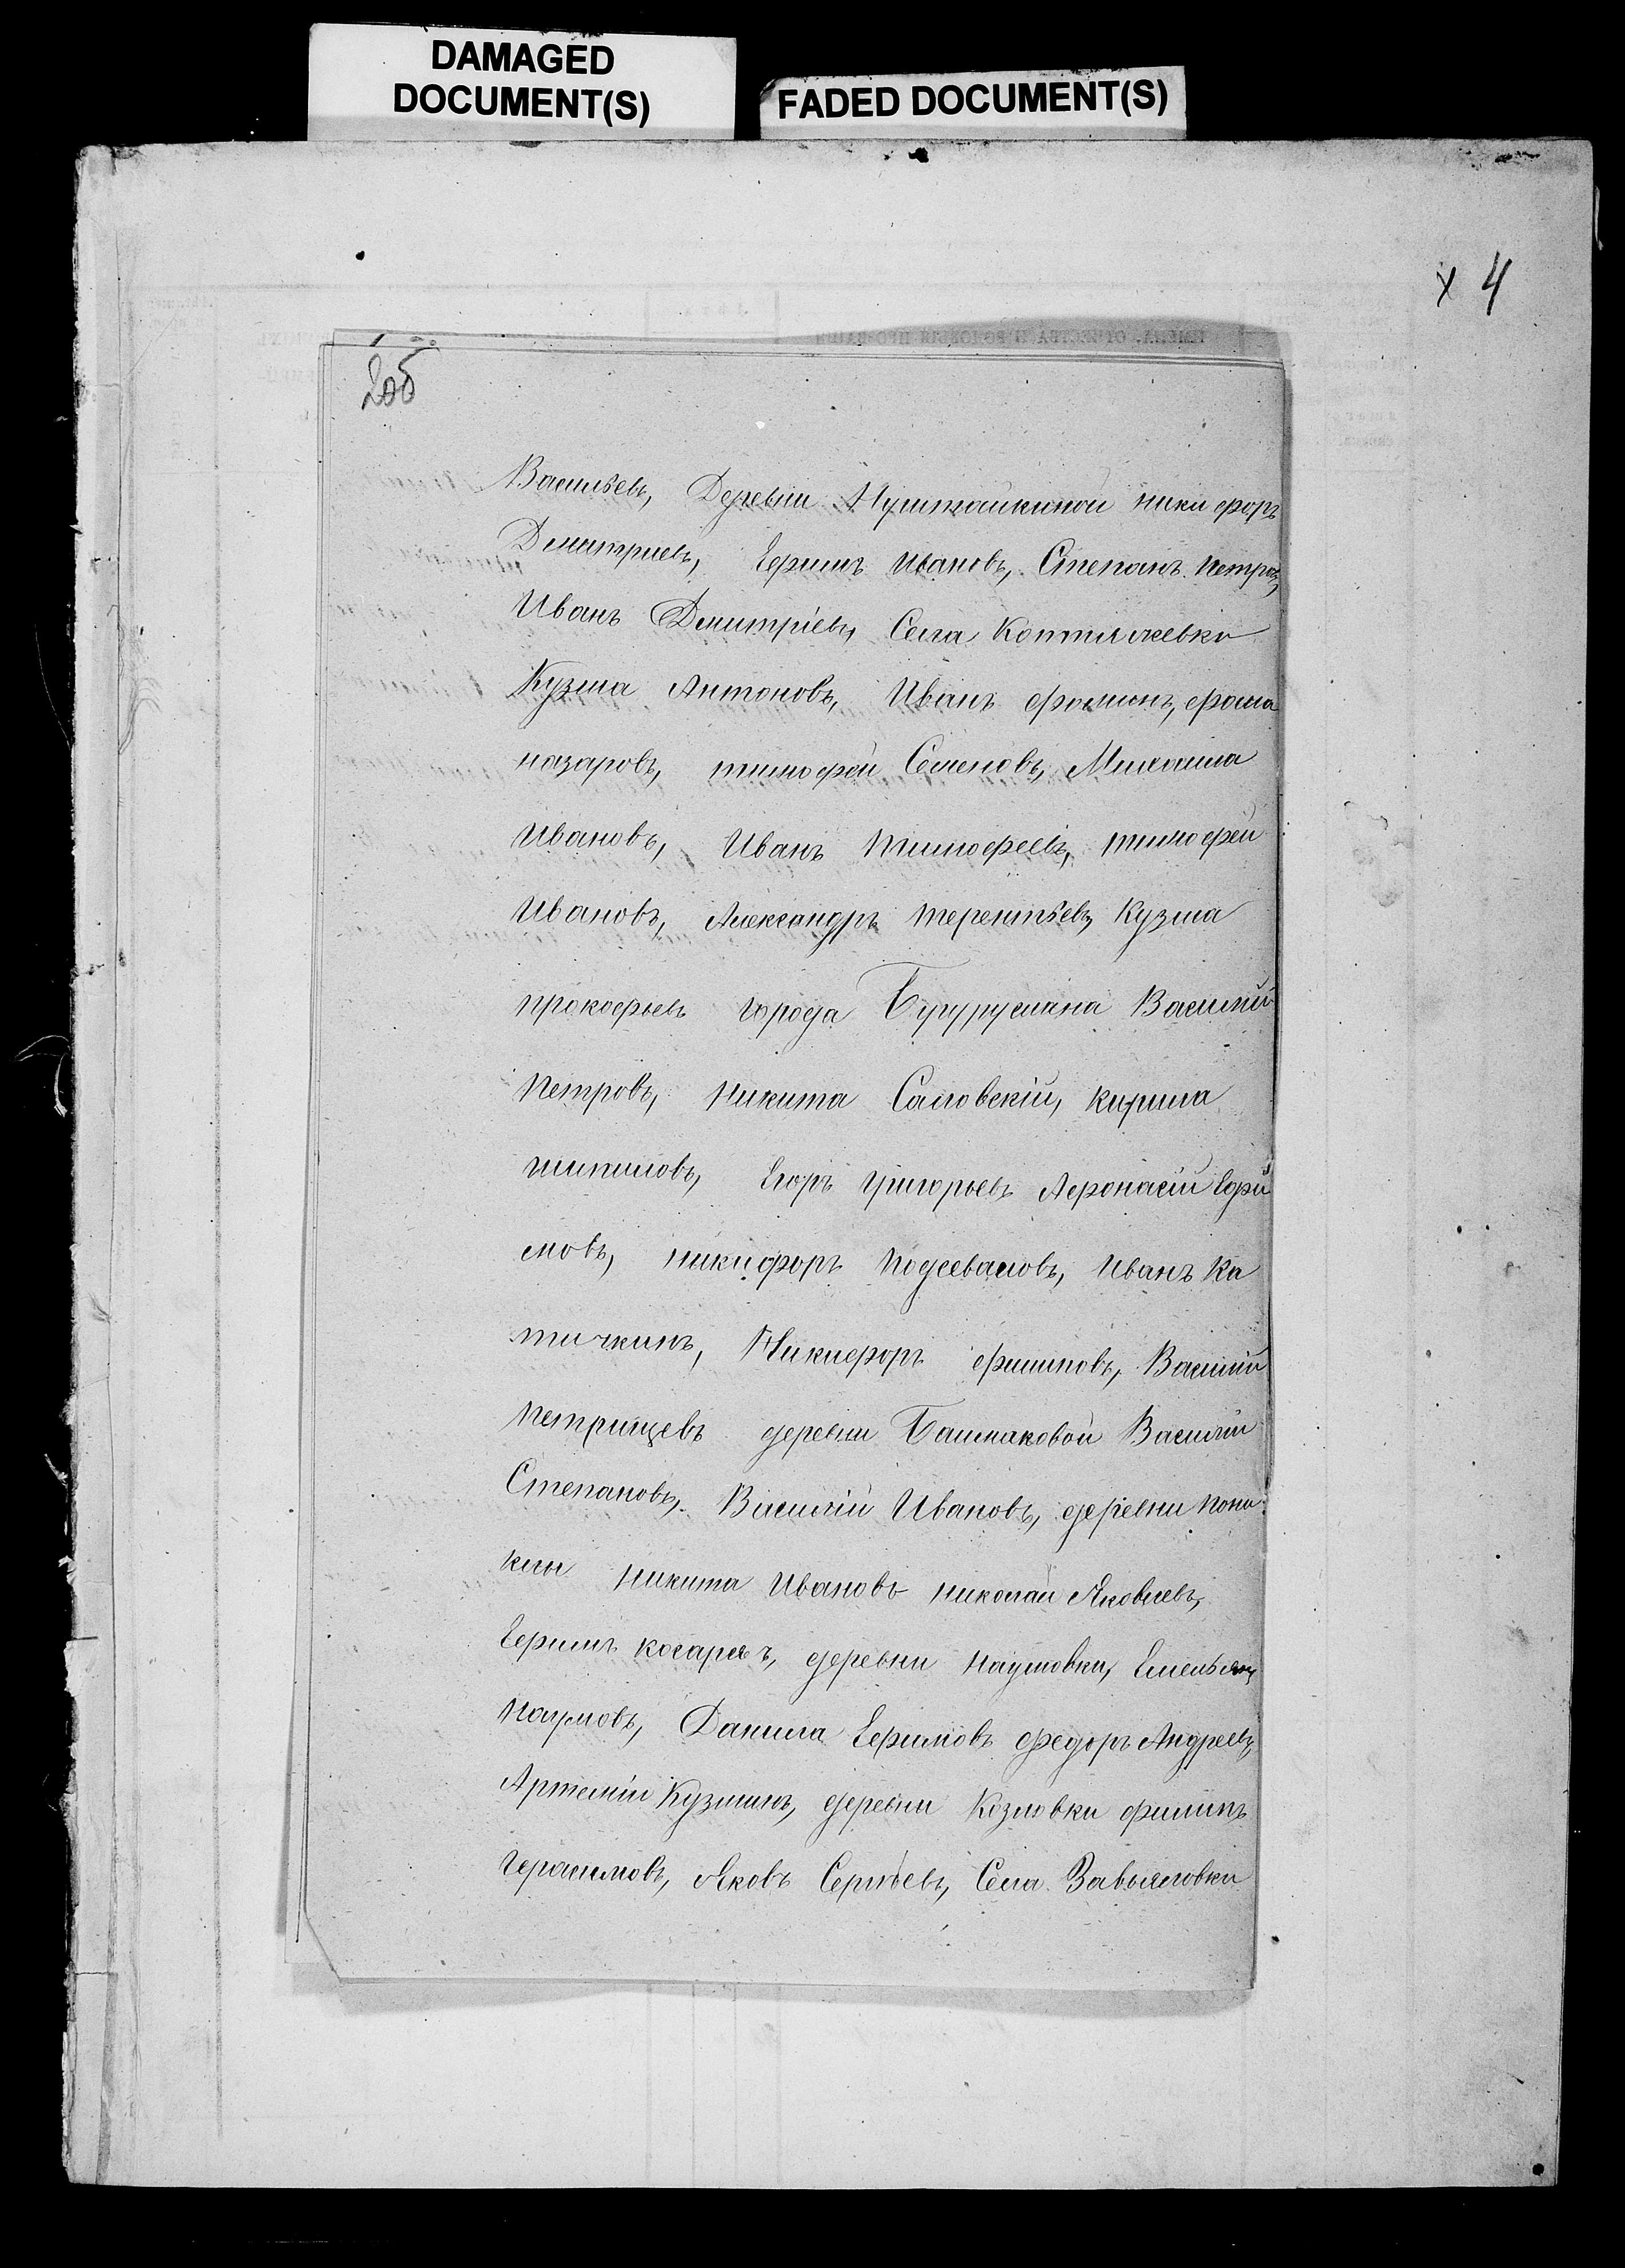 DAMAGED
DOCUMENT(S)
FADED DOCUMENT(S)
х 4
Васильевъ, Деревни Нуштайкиной никифоръ
Дмитриевъ, Ефимъ Ивановъ, Степанъ Петровъ,
Иванъ Дмитріевъ, Села Коптяжевки
Кузма Антоновъ, Иванъ фоминъ, фома
назаровъ, тимофей Семеновъ, Михайла
Ивановъ, Иванъ Тимофеевъ, тимофей
Ивановъ, Александръ терентьевъ, Кузма
прокофьевъ города Бугуруслана Василий
Петровъ, Никита Саловскій, кирила
шипиловъ, Егоръ григорьевъ Афонасій Ефи
мовъ, никифоръ Подсеваловъ, Иванъ Ка
тичкинъ, Никифоръ филиповъ, Василій
Петрищевъ деревни Башмаковой Василій
Степановъ, Василій Ивановъ, деревни Пони
кли никита Ивановъ николай Яковлевъ,
Ефимъ косаревъ, деревни наумовки, Емельянъ
Наумовъ, Данила Ефимовъ федоръ Андреевъ,
Артемій Кузминъ, деревни Козловки филипъ
Герасимовъ, Яковъ Сергѣевъ, Села Завьяловки